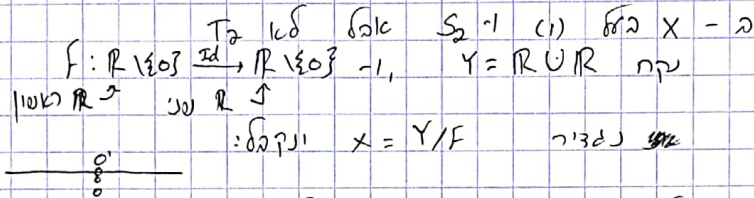 ב - X בעל (1) ו- S₂ אבל לא T₂
נקח Y = ℝ ∪ ℝ, ו- f : ℝ\{0} \xrightarrow{Id} ℝ\{0}
ℝ ראשון ℝ שני
נגדיר X = Y/F ונקבל:
0'
0